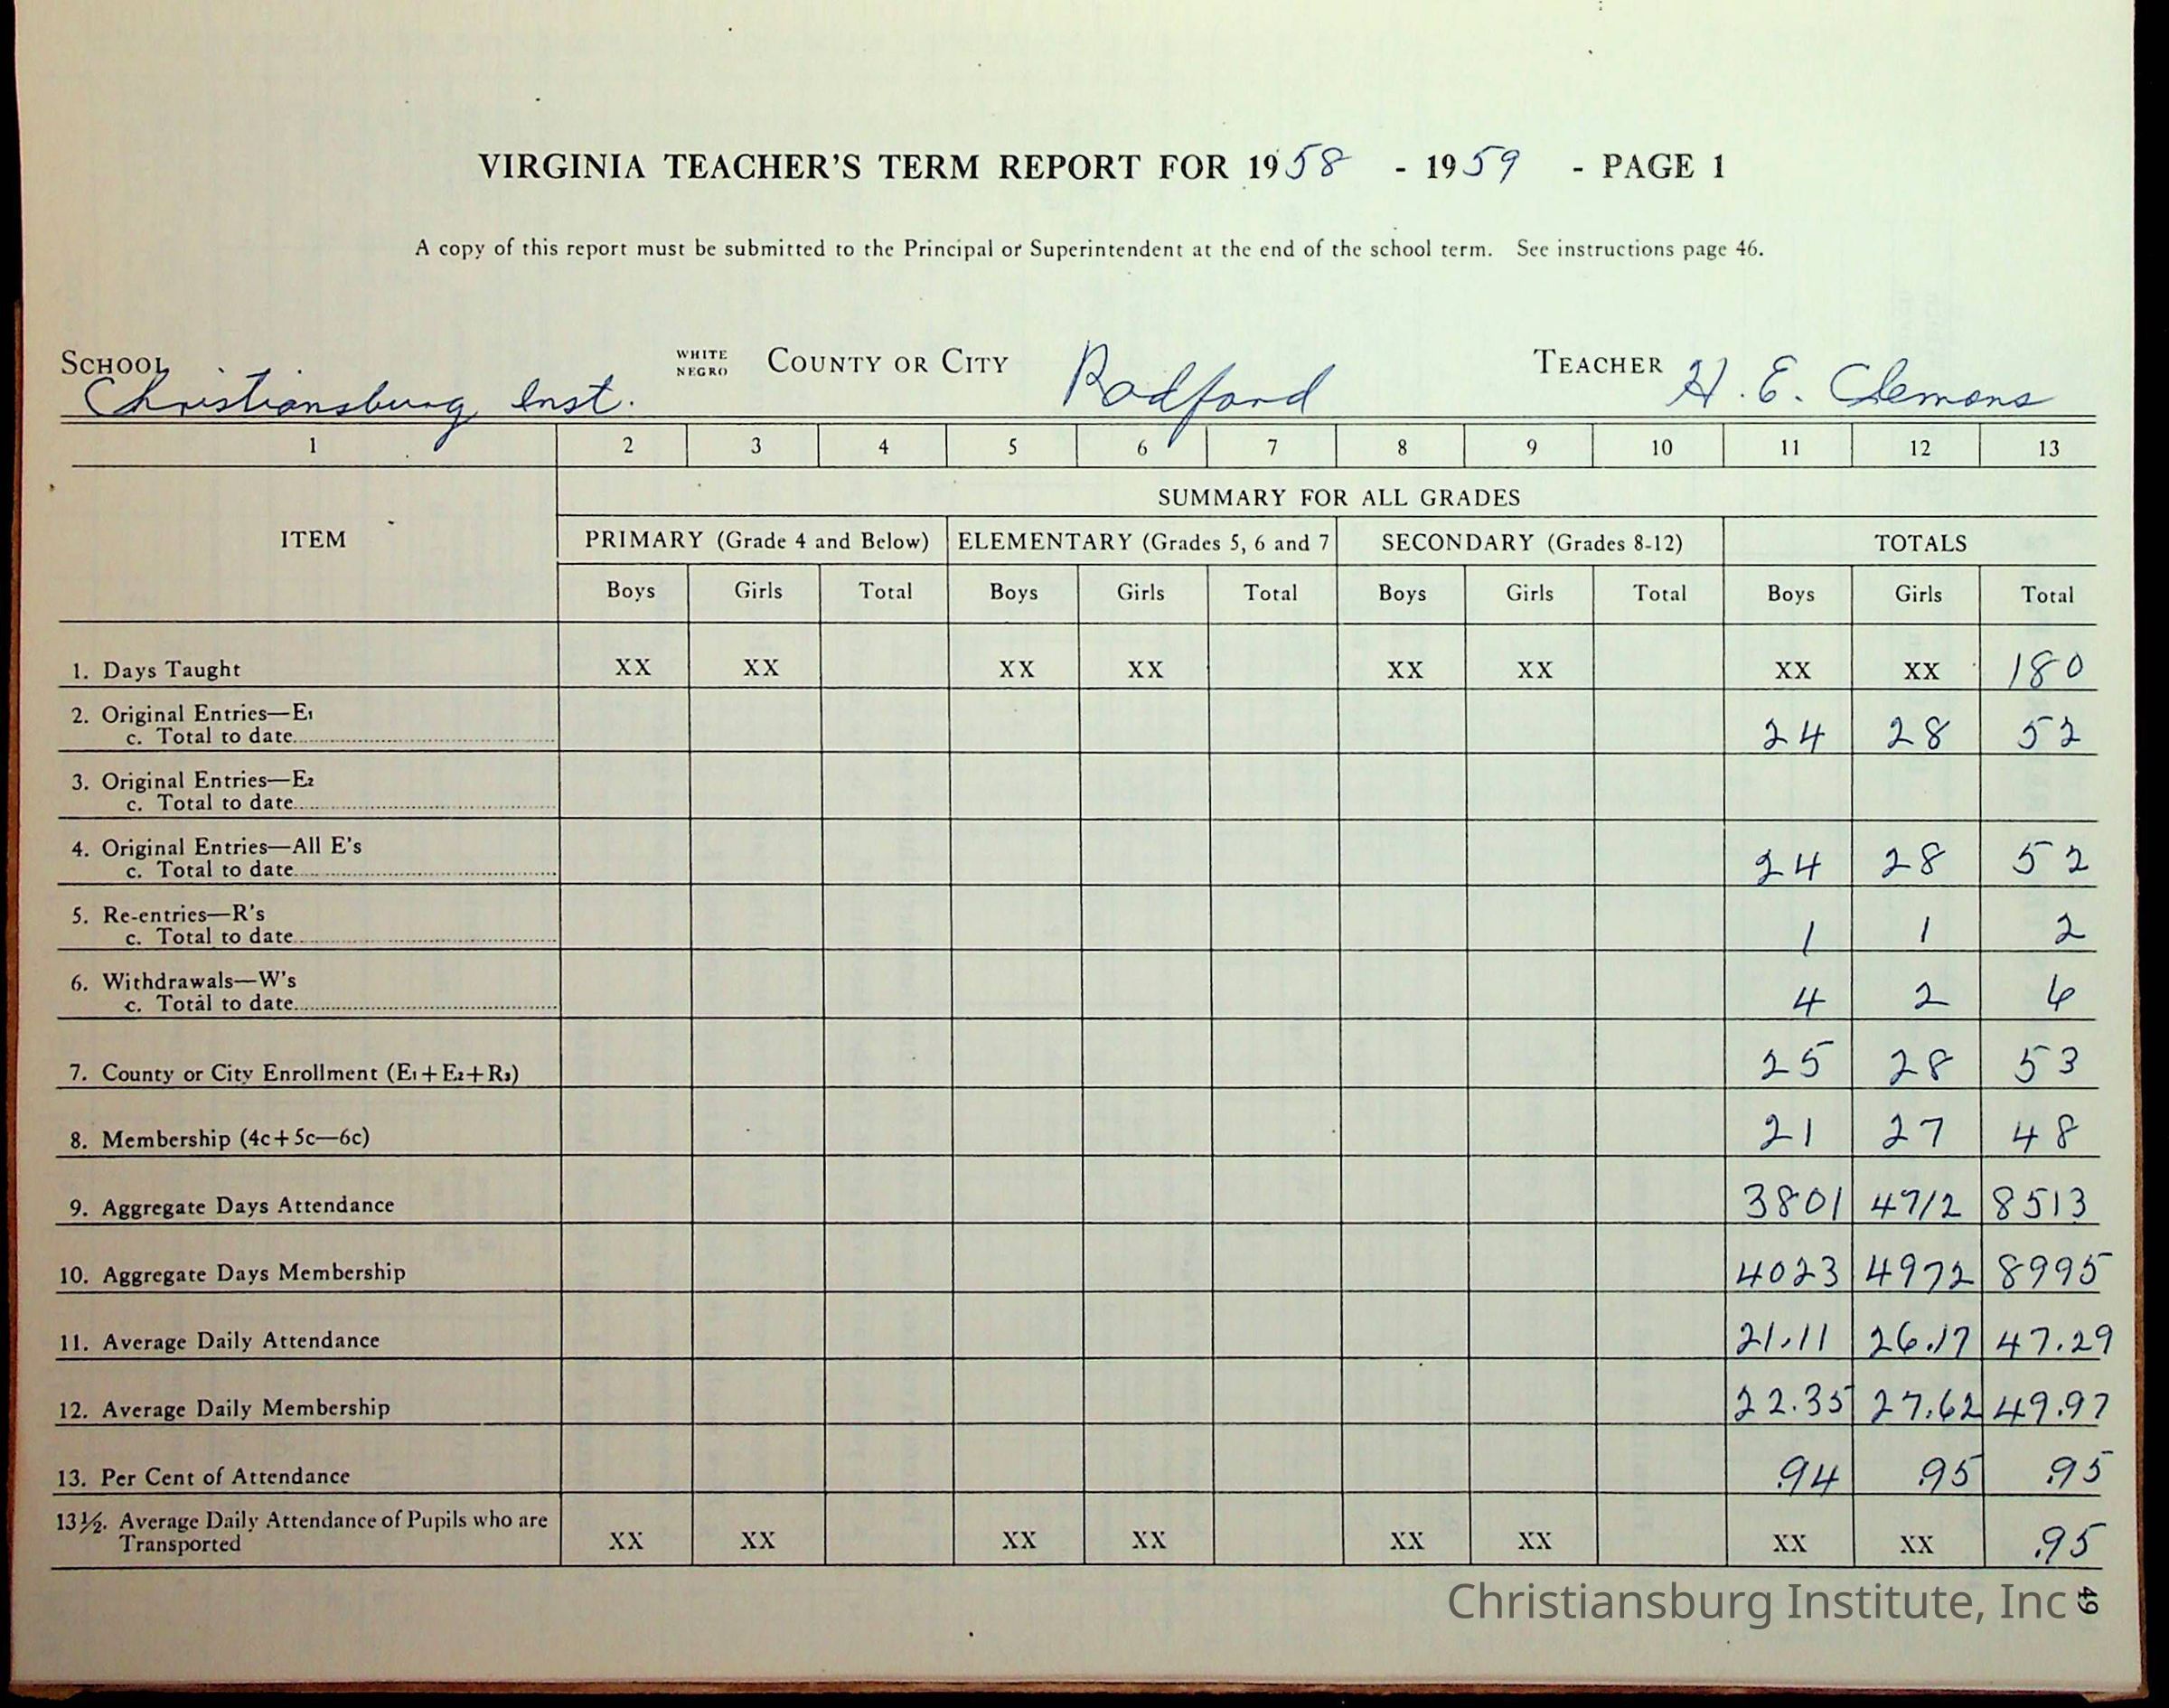 VIRGINIA TEACHER'S TERM REPORT FOR 1958 - 1959 - PAGE 1
A copy of this report must be submitted to the Principal or Superintendent at the end of the school term. See instructions page 46.
SCHOOL Christiansburg Inst. WHITE NEGRO COUNTY OR CITY Radford TEACHER H. E. Clemons
1 2 3 4 5 6 7 8 9 10 11 12 13
SUMMARY FOR ALL GRADES
ITEM PRIMARY (Grade 4 and Below) ELEMENTARY (Grades 5, 6 and 7 SECONDARY (Grades 8-12) TOTALS
Boys Girls Total Boys Girls Total Boys Girls Total Boys Girls Total
1. Days Taught XX XX XX XX XX XX XX XX 180
2. Original Entries—E1
c. Total to date 24 28 52
3. Original Entries—E2
c. Total to date
4. Original Entries—All E's
c. Total to date 24 28 52
5. Re-entries—R's
c. Total to date 1 1 2
6. Withdrawals—W's
c. Total to date 4 2 6
7. County or City Enrollment (E1+E2+R3) 25 28 53
8. Membership (4c+5c—6c) 21 27 48
9. Aggregate Days Attendance 3801 4712 8513
10. Aggregate Days Membership 4023 4972 8995
11. Average Daily Attendance 21.11 26.17 47.29
12. Average Daily Membership 22.35 27.62 49.97
13. Per Cent of Attendance .94 .95 .95
13½. Average Daily Attendance of Pupils who are
Transported XX XX XX XX XX XX XX XX .95
Christiansburg Institute, Inc
49